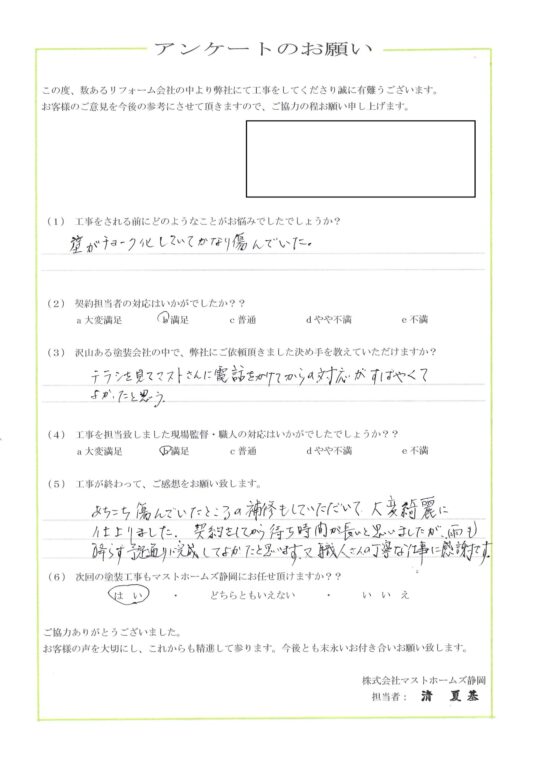 アンケートのお願い
この度、数あるリフォーム会社の中より弊社にて工事をしてくださり誠に有難うございます。
お客様のご意見を今後の参考にさせて頂きますので、ご協力の程お願い申し上げます。
(1) 工事をされる前にどのようなことがお悩みでしたでしょうか？
壁がチョーク化していてかなり傷んでいた。
(2) 契約担当者の対応はいかがでしたか？？
a 大変満足 b 満足 c 普通 d やや不満 e 不満
(3) 沢山ある塗装会社の中で、弊社にご依頼頂きました決め手を教えていただけますか？
チラシを見てマストさんに電話をかけてからの対応がすばやくて
よかったと思う。
(4) 工事を担当致しました現場監督・職人の対応はいかがでしたでしょうか？
a 大変満足 b 満足 c 普通 d やや不満 e 不満
(5) 工事が終わって、ご感想をお願い致します。
あちこち傷んでいたところの補修もしていただいて大変綺麗に
仕上りました。契約をしてから待ち時間が長いと思いましたが、雨も
降らず予定通りに完成してよかったと思います。職人さんの丁寧な仕事に感謝です。
(6) 次回の塗装工事もマストホームズ静岡にお任せ頂けますか？？
は い ・ どちらともいえない ・ い い え
ご協力ありがとうございました。
お客様の声を大切にし、これからも精進して参ります。今後とも末永いお付き合いお願い致します。
株式会社マストホームズ静岡
担当者： 清 夏基